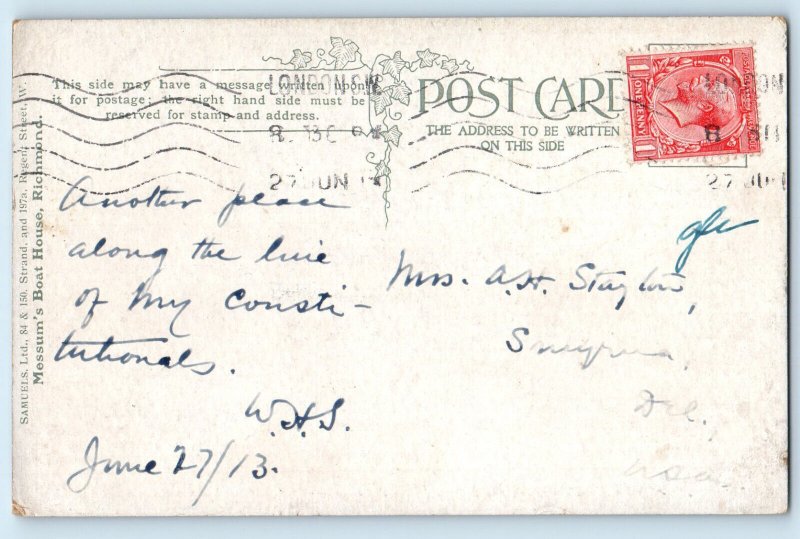 SAMUELS, Ltd., 84 & 150, Strand, and 197a, Regent Street, W.
Messum's Boat House, Richmond.
This side may have a message written upon
it for postage; the right hand side must be
reserved for stamp and address.
POST CARD
THE ADDRESS TO BE WRITTEN
ON THIS SIDE
LONDON.S.W
27 JUN
ONE PENNY
8
27 JUN
Another place
along the line
of my consti-
tutionals.
W.H.S.
June 27/13.
Mrs. A.H. Stayton,
Smyrna,
Del.,
USA.